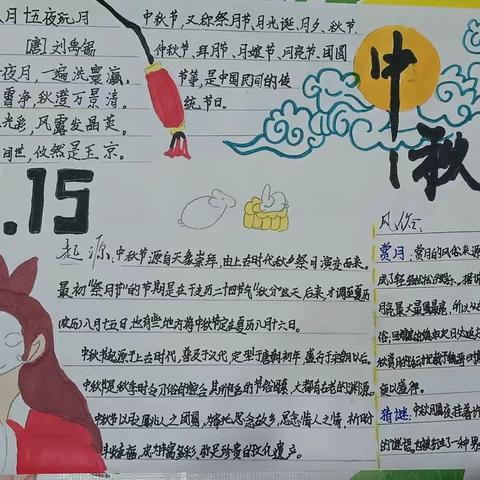 八月十五夜玩月
[唐] 刘禹锡
夜月,一遍洗寰瀛。
霁净,秋澄万景清。
光彩,风露发晶英。
间世,攸然是玉京。
中秋节,又称祭月节、月光诞、月夕、秋节、
仲秋节、拜月节、月娘节、月亮节、团圆
节等,是中国民间的传
统节日。
中秋
.15
起源:中秋节源自天象崇拜,由上古时代秋夕祭月演变而来。
最初“祭月节”的节期是在干支历二十四节气“秋分”这天,后来才调至夏历
(农历)八月十五日,也有些地方将中秋节定在夏历八月十六日。
中秋节起源于上古时代,普及于汉代,定型于唐朝初年,盛行于宋朝以后。
中秋节是秋季时令习俗的综合,其所包含的节俗因素,大都有古老的渊源。
中秋节以月之圆兆人之团圆,为寄托思念故乡,思念亲人之情,祈盼
丰收、幸福,成为丰富多彩、弥足珍贵的文化遗产。
赏月:赏月的风俗来源
月亮最大最圆最亮,所以从
更以盛行。
猜谜:中秋月圆夜挂着许
的谜语